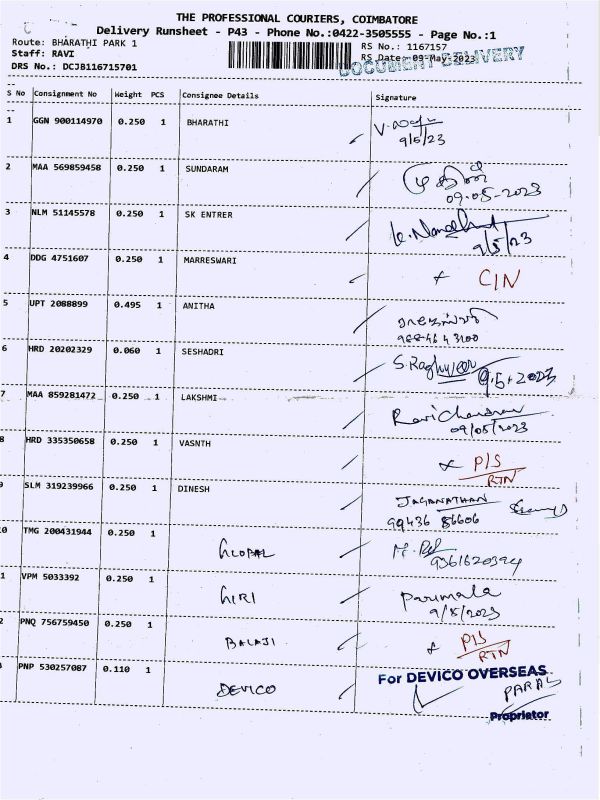 THE PROFESSIONAL COURIERS, COIMBATORE
Delivery Runsheet - P43 - Phone No.:0422-3505555 - Page No.:1
Route: BHARATHI PARK 1 RS No.: 1167157
Staff: RAVI RS Date: 09-May-2023
DRS No.: DCJB116715701 DOCUMENT DELIVERY
S No Consignment No Weight PCS Consignee Details Signature
1 GGN 900114970 0.250 1 BHARATHI
9/5/23
2 MAA 569859458 0.250 1 SUNDARAM
09-05-2023
3 NLM 51145578 0.250 1 SK ENTRER
9/5/23
4 DDG 4751607 0.250 1 MARRESWARI CIN
5 UPT 2088899 0.495 1 ANITHA
6 HRD 20202329 0.060 1 SESHADRI S.Raghu
9.5.2023
7 MAA 859281472 0.250 1 LAKSHMI Ravichandran
09/05/2023
8 HRD 335350658 0.250 1 VASNTH P/S
RTN
9 SLM 319239966 0.250 1 DINESH JAGANATHAN
99436 86606
0 TMG 200431944 0.250 1 GOPAL
9361620394
1 VPM 5033392 0.250 1 GIRI Parimala
9/5/2023
2 PNQ 756759450 0.250 1 BALAJI P/S
RTN
3 PNP 530257087 0.110 1 DEVICO For DEVICO OVERSEAS
PARAS
Proprietor